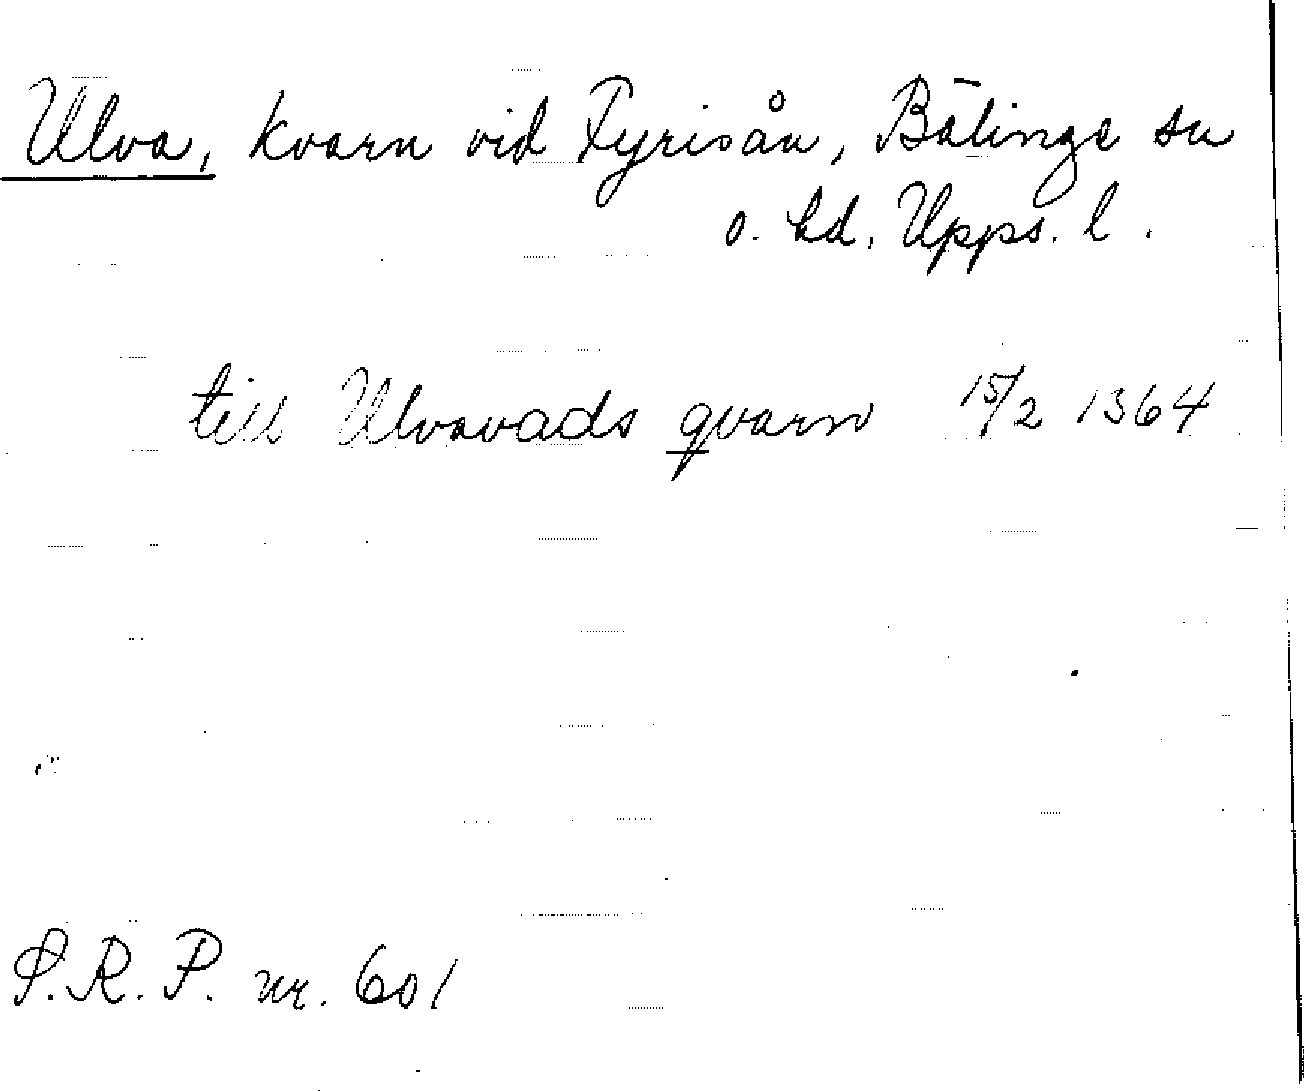 Ulva, kvarn vid Fyrisån, Bälinge sn
o. hd, Upps. l.
till Ulvavads qvarn 15/2 1364
S.R.P. nr. 601